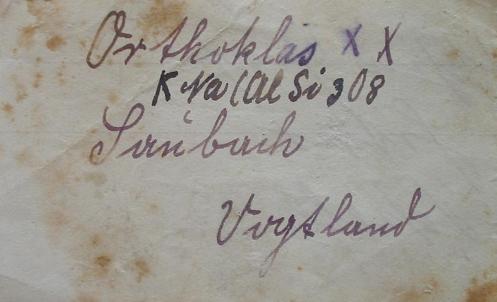 Orthoklas X X
K Na (Al Si 3 O8
Saubach
Vogtland